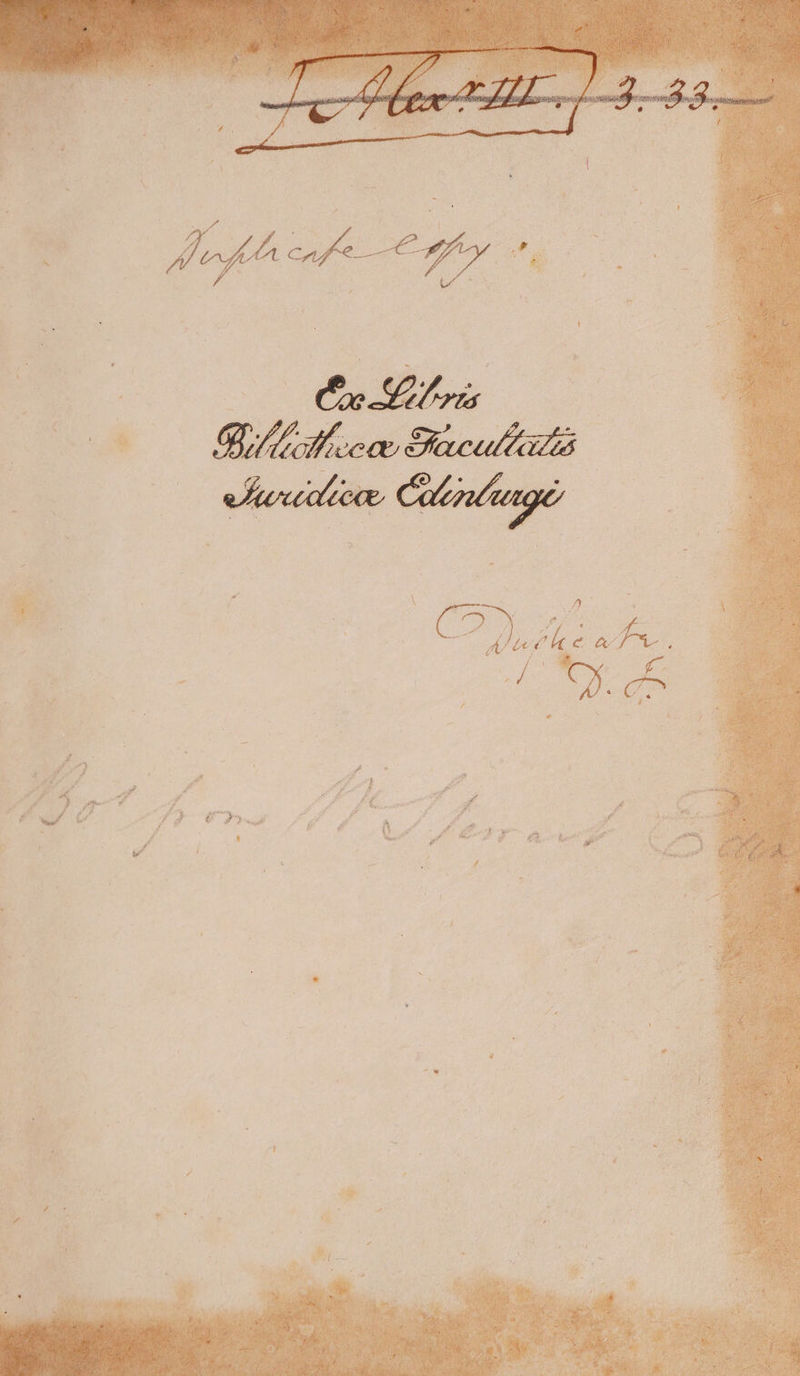 [Alexr III.] 3. 33.
Duplicate Copy.
Ex Libris
Bibliothecæ Facultatis
Juridicæ Edinburgi
Duplicate.
D. F.
Bot from Mr Stewart Edin